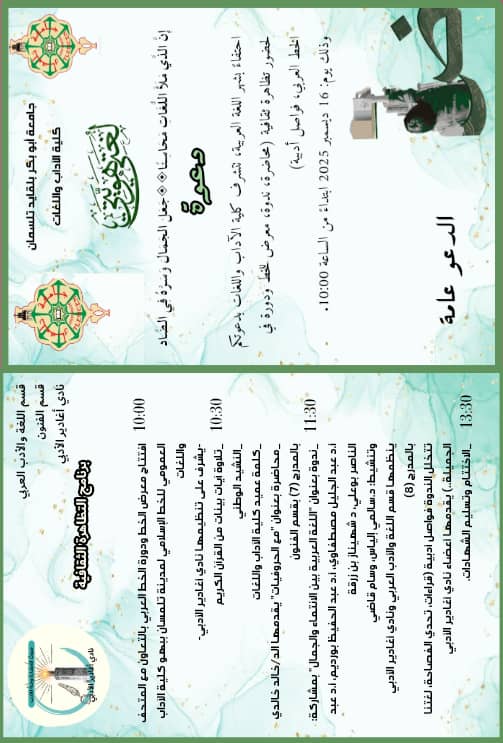 جامعة أبو بكر بلقايد تلمسان
كلية الآداب واللغات
لغتي هويتي
إنَّ الَّذِي مَلَأَ اللُّغَاتِ مَحَاسِنًا جَعَلَ الجَمَالَ وَسِرَّهُ فِي الضَّادِ
دعوة
احتفاءً بشهر اللغة العربية، تتشرف كلية الآداب واللغات بدعوتكم
لحضور تظاهرة ثقافية (محاضرة، ندوة، معرض للخط ودورة في
الخط العربي، فواصل أدبية)
وذلك يوم: 16 ديسمبر 2025 ابتداءً من الساعة 10:00.
الدعو عامة
قسم اللغة والأدب العربي
قسم الفنون
نادي أغادير الأدبي
برنامج التظاهرة الثقافية
نادي أغادير الأدبي
10:00
افتتاح معرض الخط ودورة الخط العربي بالتعاون مع المتحف
العمومي للخط الإسلامي لمدينة تلمسان ببهو كلية الآداب
واللغات
-يشرف على تنظيمها نادي أغادير الأدبي-
10:30
_تلاوة آيات بينات من القرآن الكريم
_النشيد الوطني
_كلمة عميد كلية الآداب واللغات
_محاضرة بعنوان "مع الحروفيات" يقدمها الد/خالد خالدي
11:30
_ندوة بعنوان "اللغة العربية بين الانتماء والجمال" بمشاركة:
بالمدرج (7) بقسم الفنون
أ.د عبد الجليل مصطفاوي، أ.د عبد الحفيظ بورديم، أ.د عبد
الناصر بوعلي، د شهيناز بن زرقة
وتنشيط: د.سالمي إلياس، وسام قاضي
ينظمها قسم اللغة والأدب العربي ونادي أغادير الأدبي
بالمدرج (8)
تتخلل الندوة فواصل أدبية (قراءات، تحدي الفصاحة، لغتنا
الجميلة..) يقدمها أعضاء نادي أغادير الأدبي
13:30
_الاختتام وتسليم الشهادات.